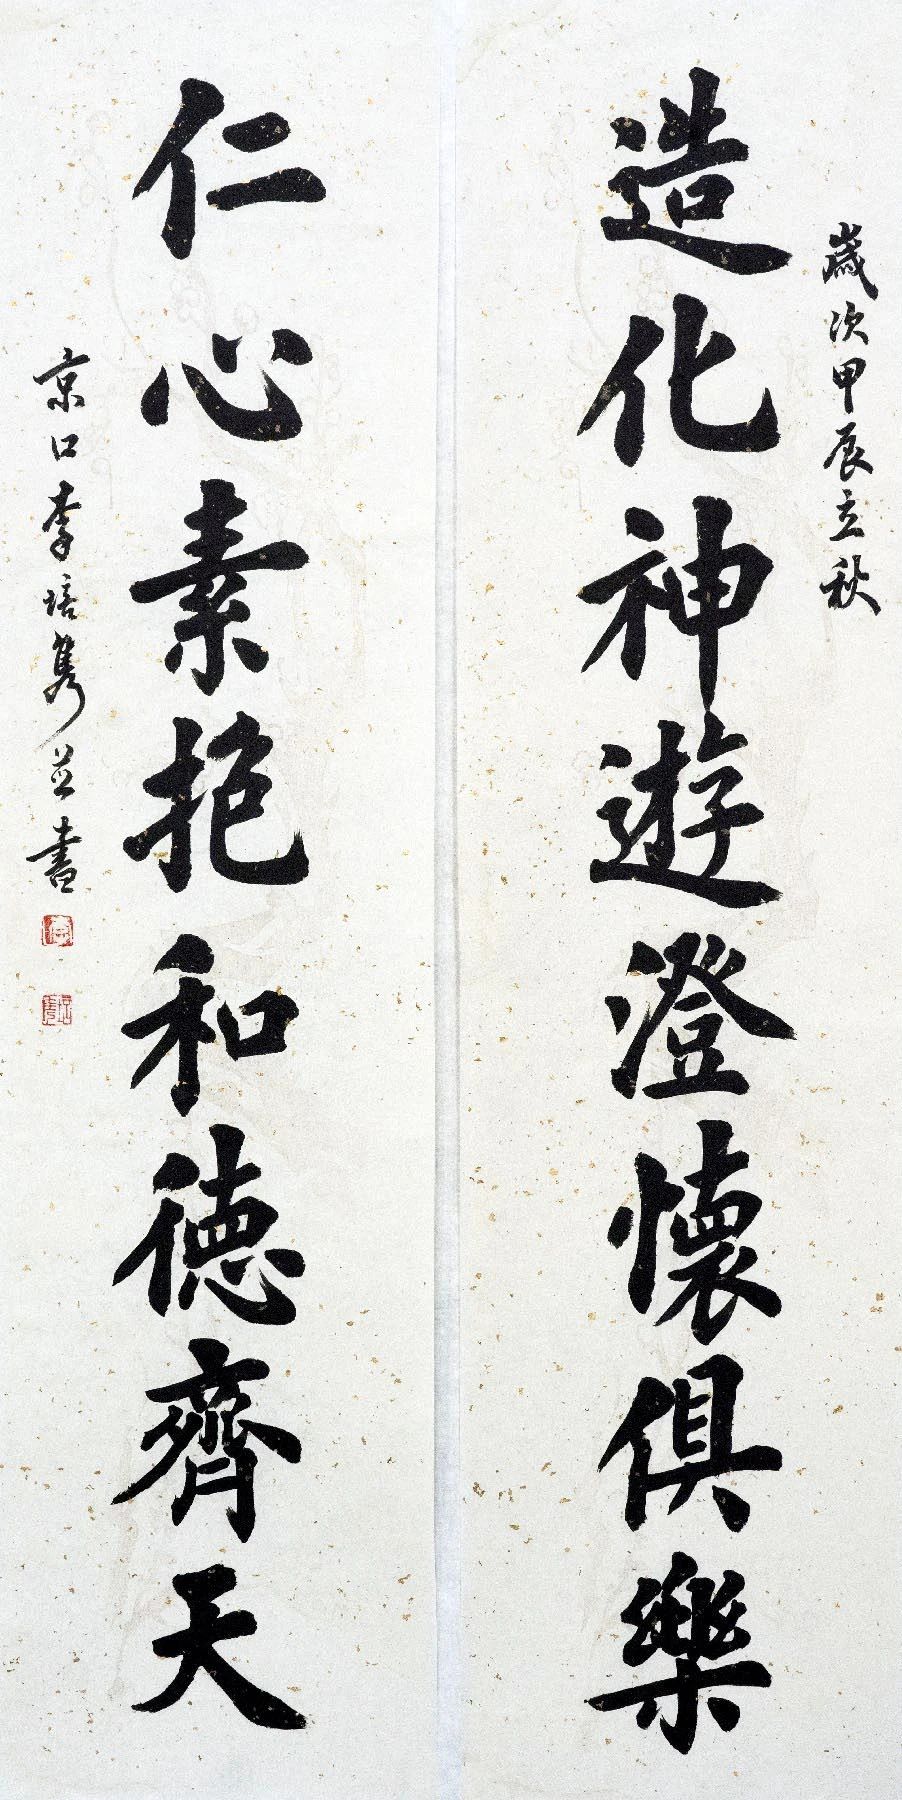 歲次甲辰立秋
造化神遊澄懷俱樂
仁心素抱和德齊天
京口李培隽並書